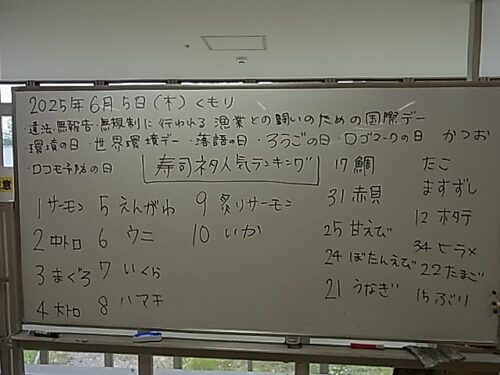 2025年6月5日(木)くもり
・違法・無報告・無規制に行われる漁業との闘いのための国際デー
・環境の日・世界環境デー・落語の日・ろうごの日・ロゴマークの日
・ロコモ予防の日
寿司ネタ人気ランキング
1サーモン 5えんがわ 9炙りサーモン
2中トロ 6ウニ 10いか
3まぐろ 7いくら
4大トロ 8ハマチ
かつお
17鯛 たこ
31赤貝 ますずし
25甘えび 12ホタテ
24ぼたんえび 34ヒラメ
21うなぎ 22たまご
15ぶり